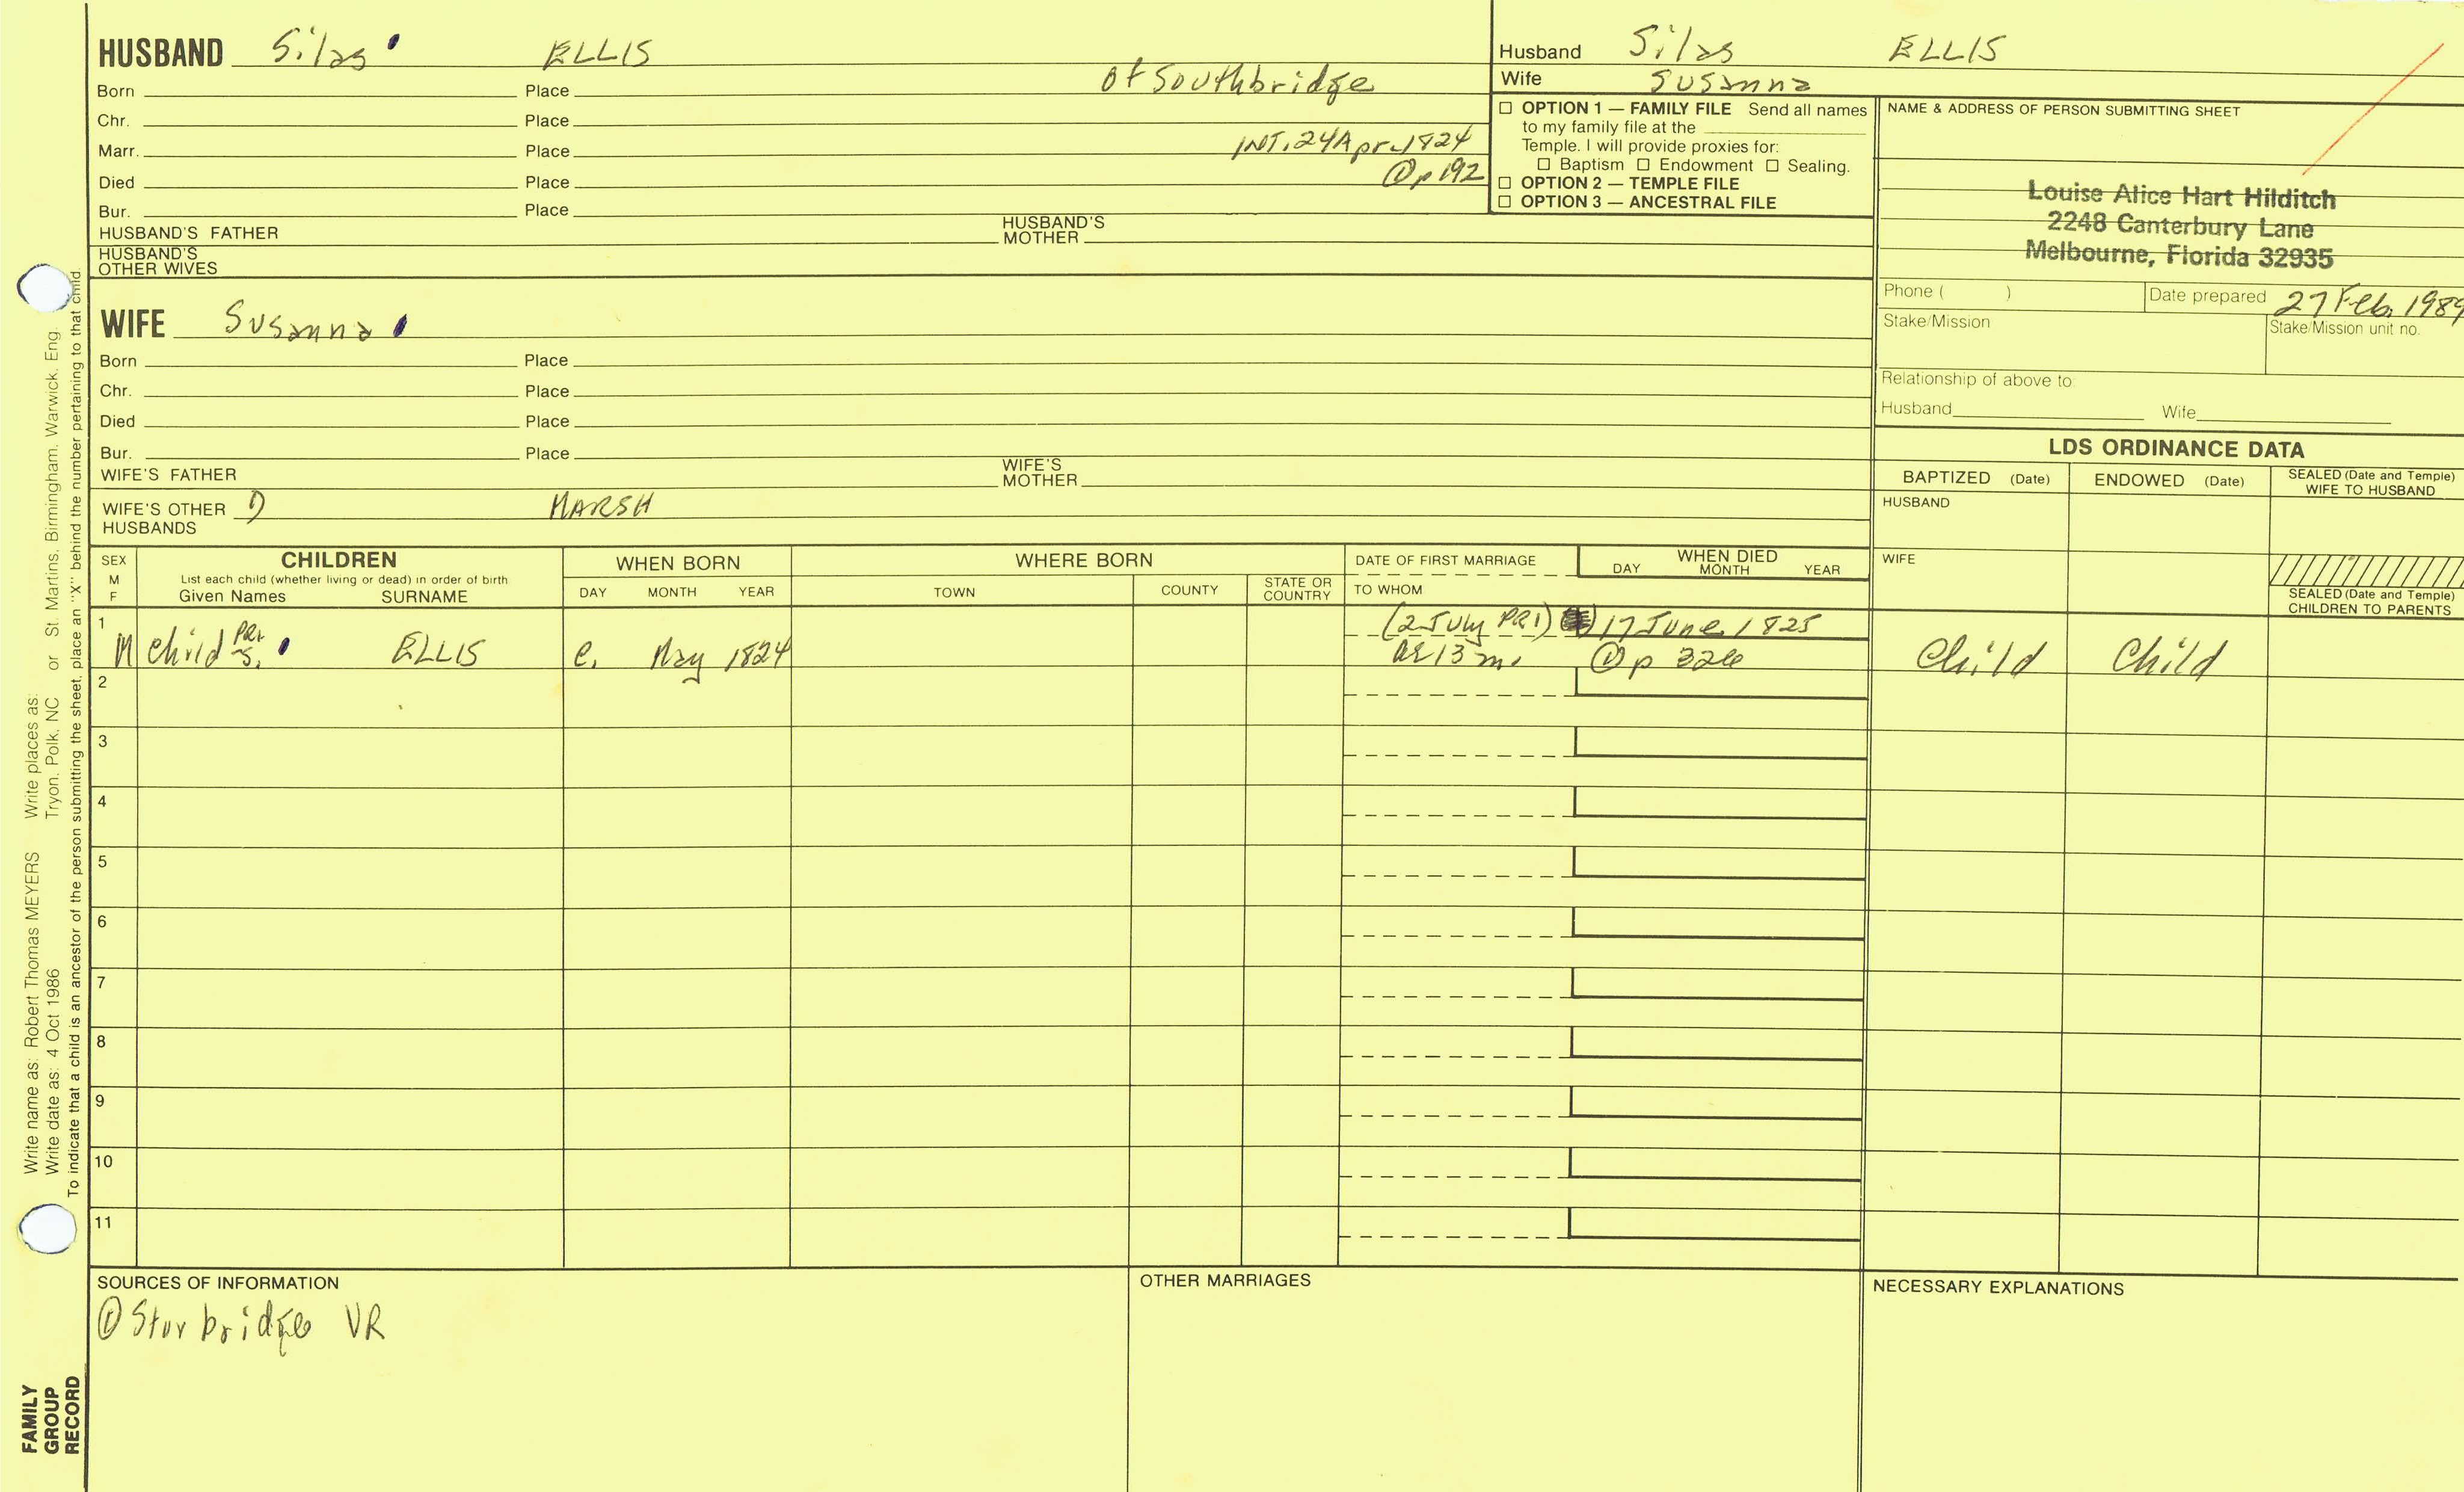 HUSBAND Silas ELLIS
Born Place of Southbridge
Chr. Place
Marr. Place INT. 24 Apr. 1824
Died Place @p 192
Bur. Place
HUSBAND'S FATHER HUSBAND'S MOTHER
HUSBAND'S OTHER WIVES
Husband Silas ELLIS
Wife Susanna
☐ OPTION 1 — FAMILY FILE Send all names
to my family file at the
Temple. I will provide proxies for:
☐ Baptism ☐ Endowment ☐ Sealing.
☐ OPTION 2 — TEMPLE FILE
☐ OPTION 3 — ANCESTRAL FILE
NAME & ADDRESS OF PERSON SUBMITTING SHEET
Louise Alice Hart Hilditch
2248 Canterbury Lane
Melbourne, Florida 32935
Phone ( ) Date prepared 27 Feb. 1989
Stake/Mission Stake/Mission unit no.
Relationship of above to:
Husband Wife
WIFE Susanna
Born Place
Chr. Place
Died Place
Bur. Place
WIFE'S FATHER WIFE'S MOTHER
WIFE'S OTHER HUSBANDS MARSH
LDS ORDINANCE DATA
BAPTIZED (Date) ENDOWED (Date) SEALED (Date and Temple)
WIFE TO HUSBAND
HUSBAND
WIFE
SEALED (Date and Temple)
CHILDREN TO PARENTS
SEX
M
F
CHILDREN
List each child (whether living or dead) in order of birth
Given Names SURNAME
WHEN BORN
DAY MONTH YEAR
WHERE BORN
TOWN COUNTY STATE OR COUNTRY
DATE OF FIRST MARRIAGE
TO WHOM
WHEN DIED
DAY MONTH YEAR
1 (2 July PR1) 17 June 1825
M Child PR1 s. ELLIS c. May 1824 ae 13 m. @p 326 Child Child
2
3
4
5
6
7
8
9
10
11
SOURCES OF INFORMATION
① Sturbridge VR
OTHER MARRIAGES
NECESSARY EXPLANATIONS
Write name as: Robert Thomas MEYERS Write places as:
Write date as: 4 Oct 1986 Tryon, Polk, NC or St. Martins, Birmingham, Warwick, Eng.
To indicate that a child is an ancestor of the person submitting the sheet, place an "X" behind the number pertaining to that child.
FAMILY
GROUP
RECORD